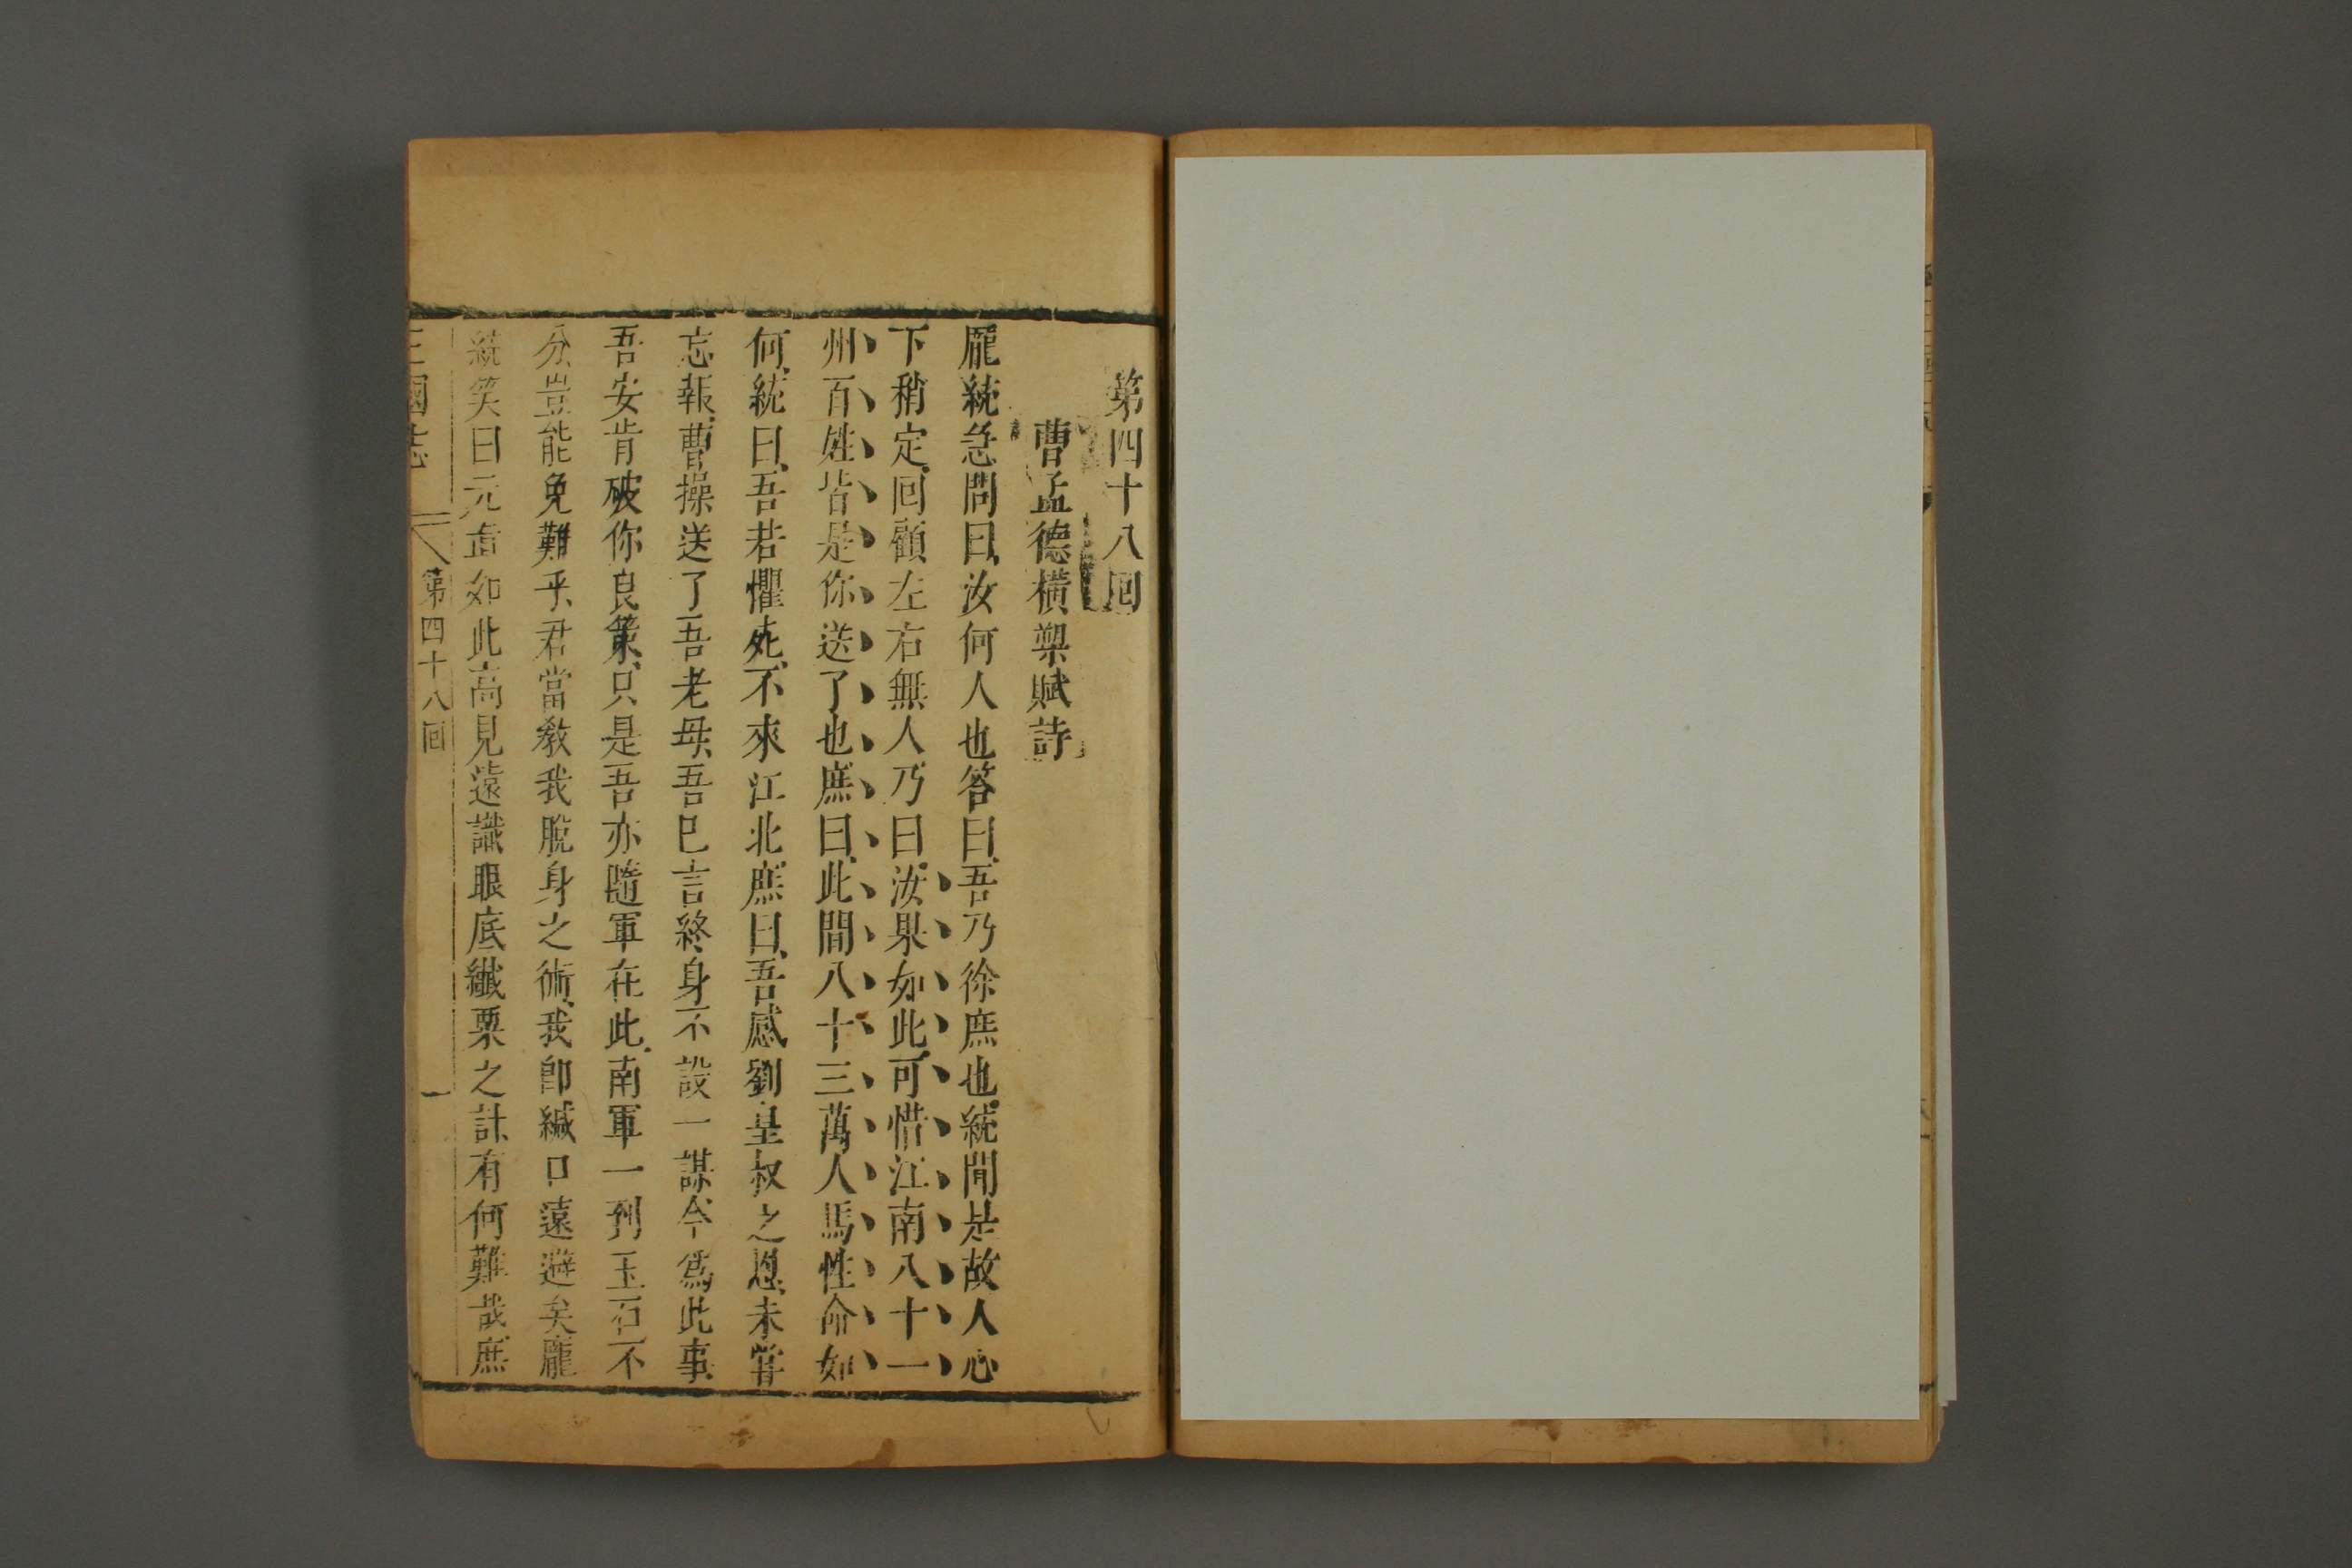 第四十八回
曹孟德橫槊賦詩
龐統急問曰汝何人也答曰吾乃徐庶也統聞是故人心
下稍定回顧左右無人乃曰汝果如此可惜江南八十一
州百姓皆是你送了也庶曰此間八十三萬人馬性命如
何統曰吾若懼死不來江北庶曰吾感劉皇叔之恩未嘗
忘報曹操送了吾老母吾已言終身不設一謀今爲此事
吾安肯破你良策只是吾亦隨軍在此南軍一到玉石不
分豈能免難乎君當教我脫身之術我卽緘口遠避矣龐
統笑曰元直如此高見遠識眼底纖粟之計有何難哉庶
三國志 第四十八回 一